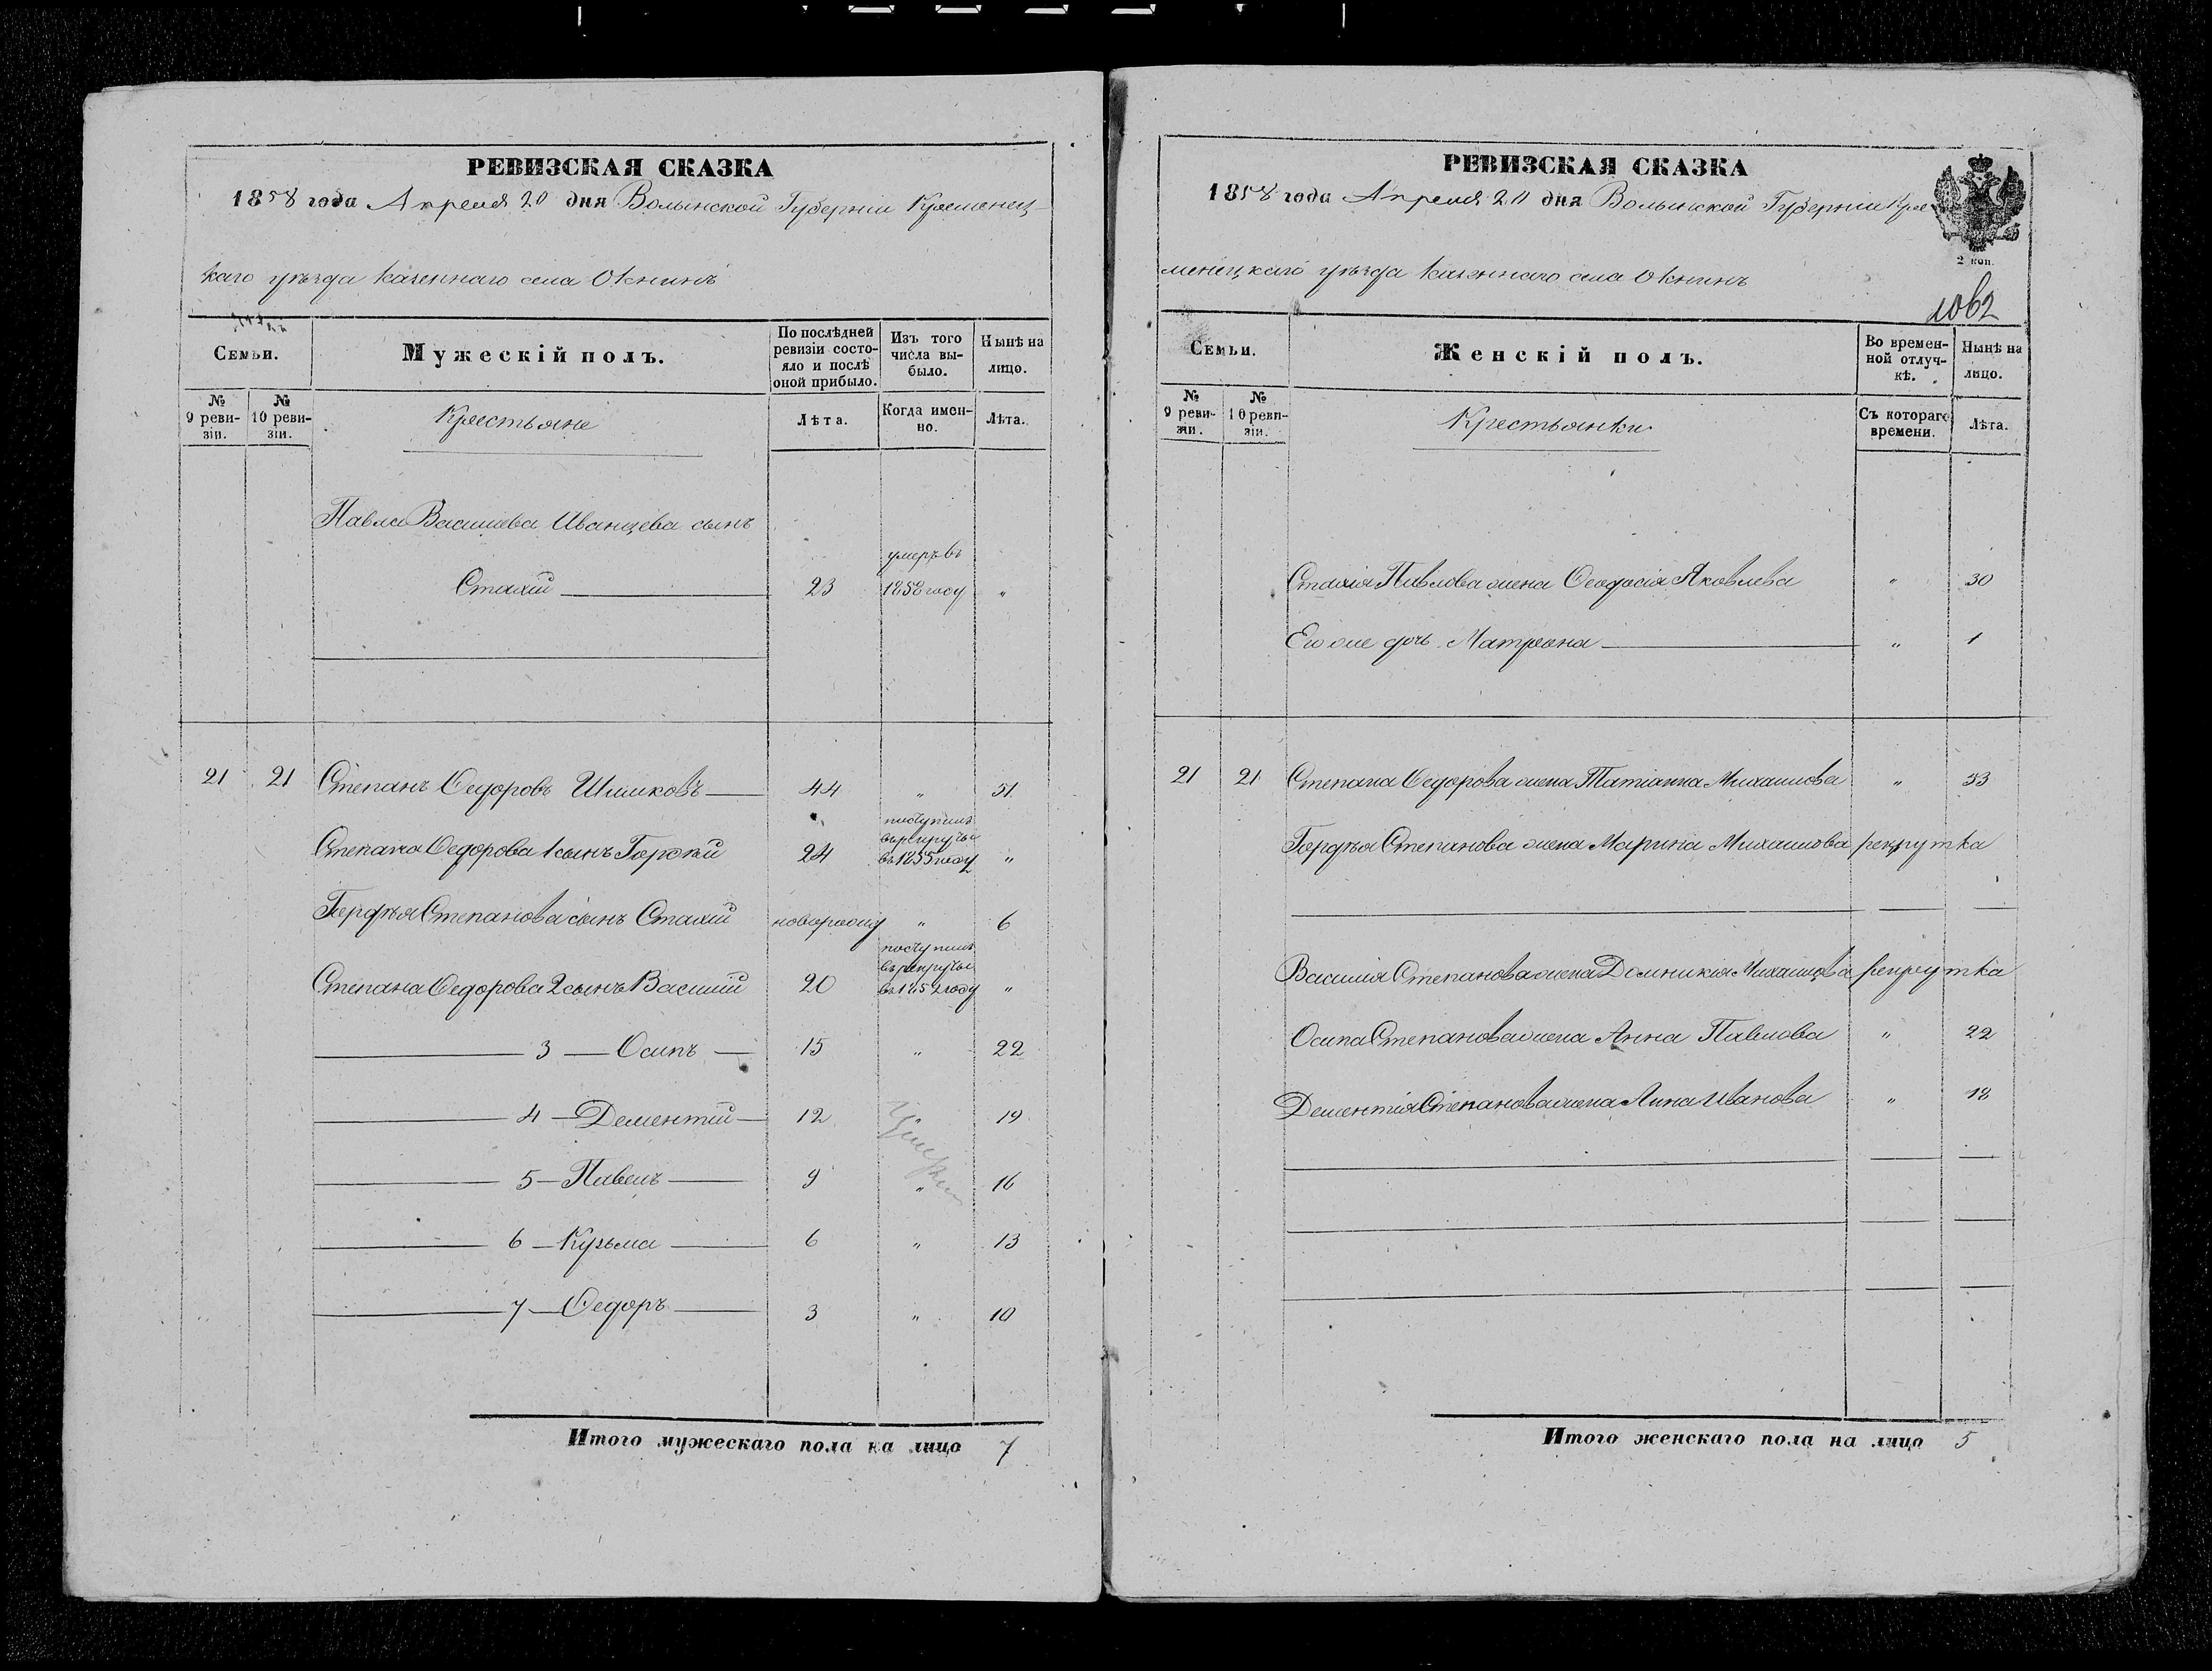 РЕВИЗСКАЯ СКАЗКА
1858 года Апреля 20 дня Волынской Губерніи Кременец-
каго уѣзда казеннаго села Окнинъ
Семьи.
Мужескій полъ.
По послѣдней ревизіи состояло и послѣ оной прибыло.
Изъ того числа выбыло.
Нынѣ на лицо.
№ 9 ревизіи.
№ 10 ревизіи.
Крестьяне
Лѣта.
Когда именно.
Лѣта.
Павла Васильева Иванцева сынъ
Стахій 23 умеръ въ 1858 году "
21 21 Степанъ Ѳедоровъ Шишковъ 44 " 51
Степана Ѳедорова 1 сынъ Гордѣй 24 поступилъ въ рекруты въ 1855 году "
Гордѣя Степанова сынъ Стахій новорожд " 6
Степана Ѳедорова 2 сынъ Василій 20 поступилъ въ рекруты въ 1852 году "
3 Осипъ 15 " 22
4 Дементій 12 " 19
5 Павелъ 9 " 16
6 Кузьма 6 " 13
7 Ѳедоръ 3 " 10
Итого мужескаго пола на лицо 7
РЕВИЗСКАЯ СКАЗКА
1858 года Апреля 20 дня Волынской Губерніи Кре
менецкаго уѣзда казеннаго села Окнинъ
2 коп.
1062
Семьи.
Женскій полъ.
Во временной отлучкѣ.
Нынѣ на лицо.
№ 9 ревизіи.
№ 10 ревизіи.
Крестьянки
Съ котораго времени.
Лѣта.
Стахія Павлова жена Ѳеодосія Яковлева " 30
Его же дочь Матрона " 1
21 21 Степана Ѳедорова жена Татіанна Михаилова " 53
Гордѣя Степанова жена Марина Михаилова рекрутка
Василія Степанова жена Домникія Михаилова рекрутка
Осипа Степанова жена Анна Павлова " 22
Дементія Степанова жена Анна Иванова " 18
Итого женскаго пола на лицо 5